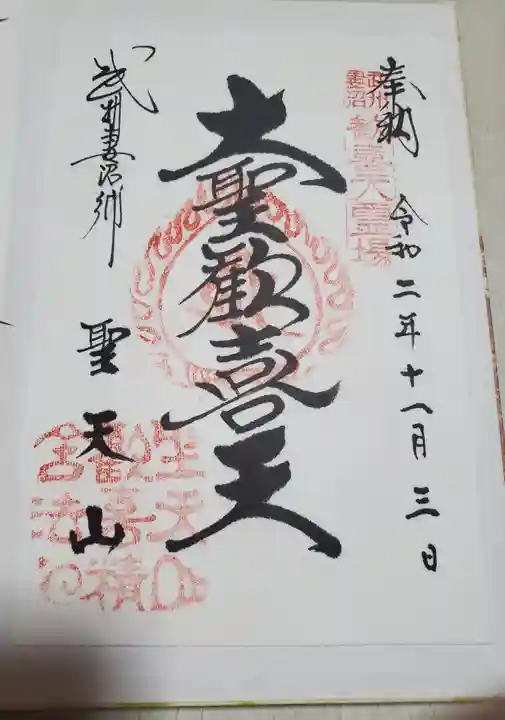 奉納
令和二年十一月三日
武州
妻沼
歓喜天霊場
大聖歓喜天
武州妻沼郷
聖天山